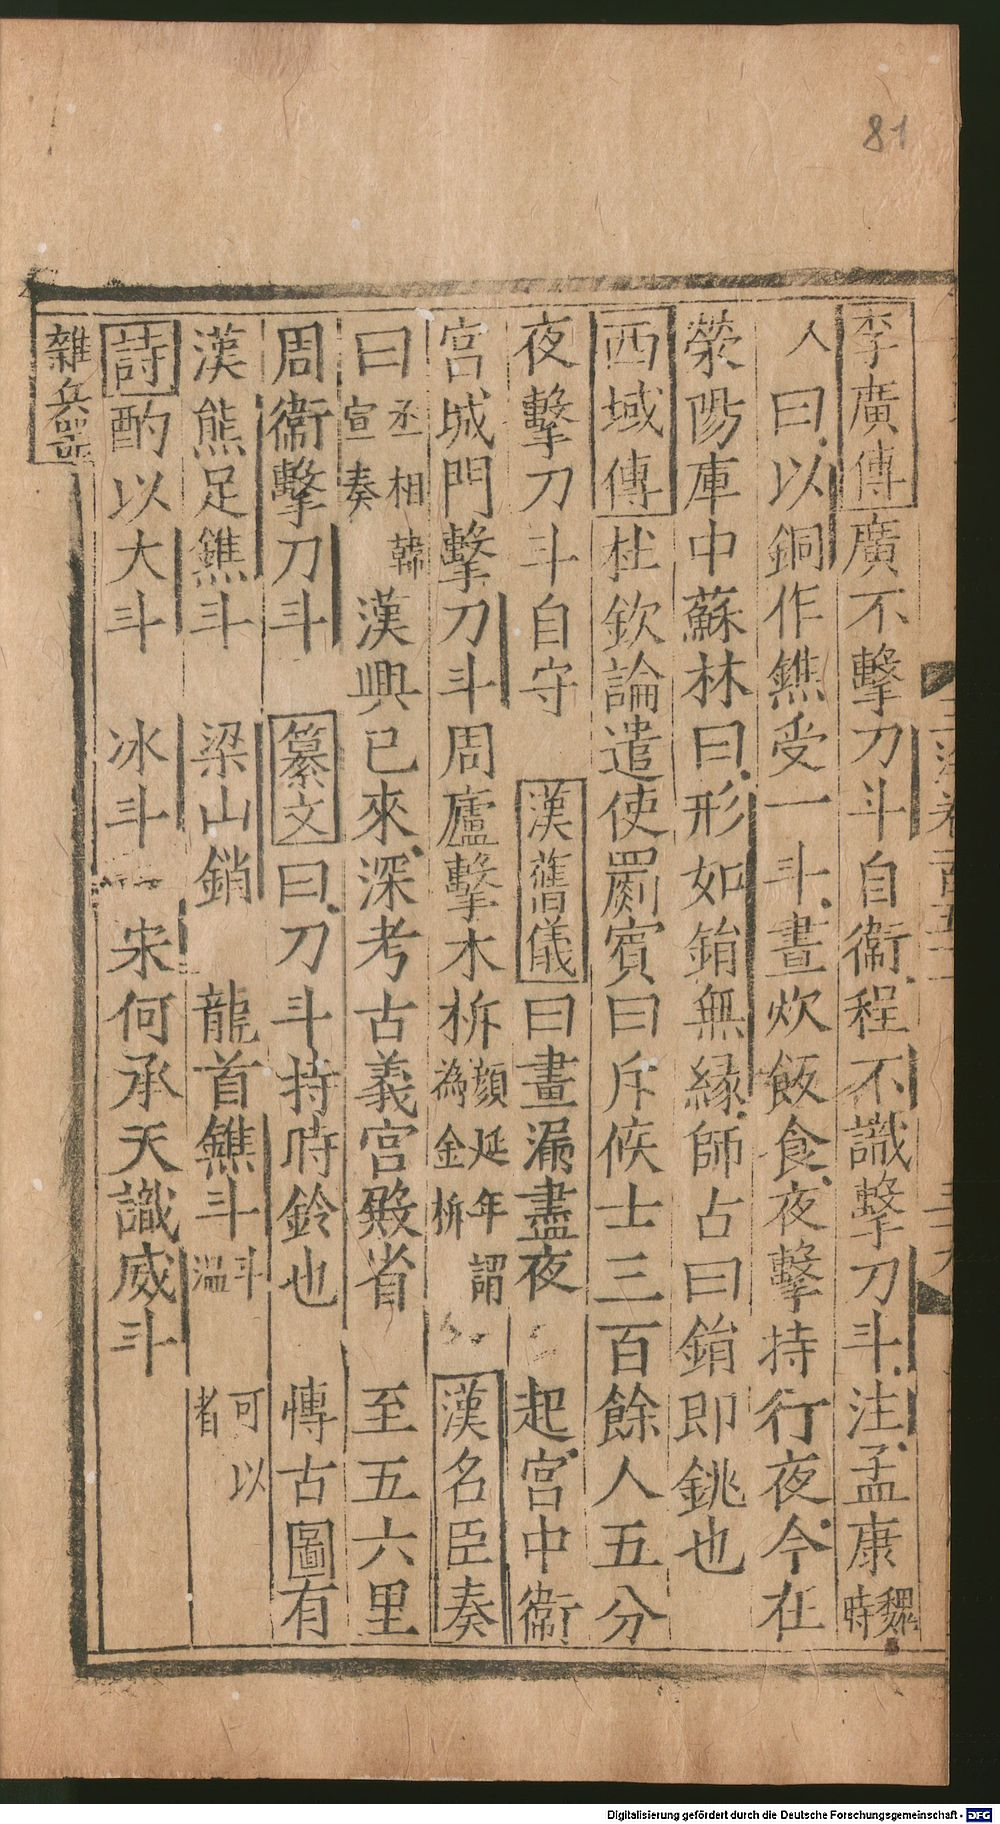 81
李廣傳廣不擊刀斗自衞程不識擊刀斗注孟康魏時
人曰以銅作鐎受一斗晝炊飯食夜擊持行夜今在
滎陽庫中蘇林曰形如鋗無緣師古曰鋗即銚也
西域傳杜欽論遣使罽賓曰斥候士三百餘人五分
夜擊刀斗自守 漢舊儀曰晝漏盡夜 起宮中衞
宮城門擊刀斗周廬擊木柝顔延年謂為金柝 漢名臣奏
曰丞相韓宣奏漢興已來深考古義宮殿省 至五六里
周衞擊刀斗 纂文曰刀斗持時鈴也 慱古圖有
漢熊足鐎斗 梁山銷 龍首鐎斗斗溫 可以者
詩酌以大斗 冰斗 宋何承天識威斗
雜兵器
Digitalisierung gefördert durch die Deutsche Forschungsgemeinschaft - DFG